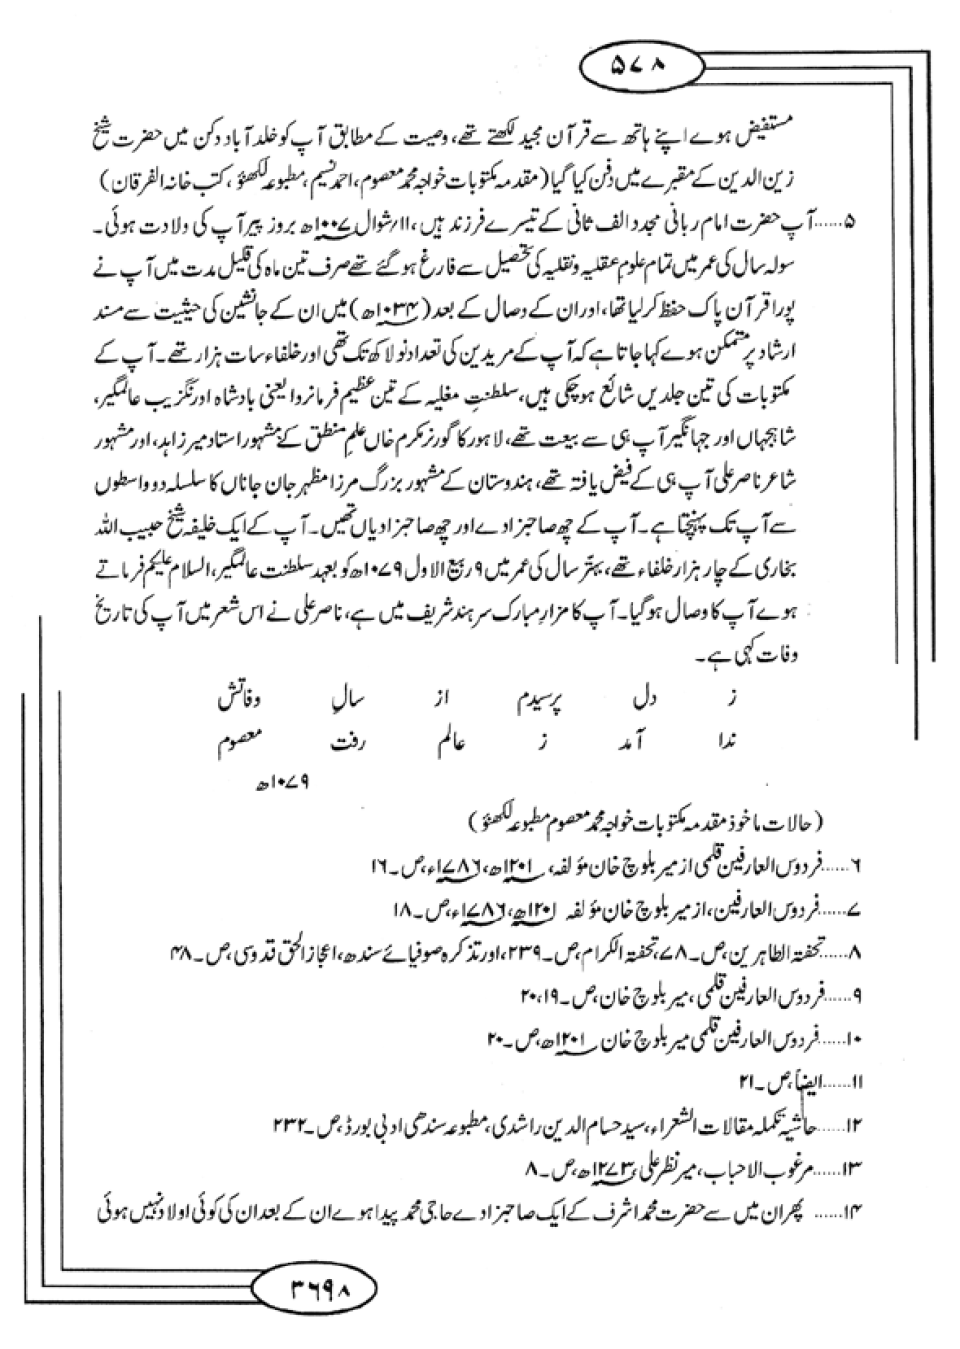 ۵۷۸
مستفیض ہوے اپنے ہاتھ سے قرآن مجید لکھتے تھے، وصیت کے مطابق آپ کو خلد آباد دکن میں حضرت شیخ
زین الدین کے مقبرے میں دفن کیا گیا (مقدمہ مکتوبات خواجہ محمد معصوم، احمد نسیم، مطبوعہ لکھنؤ، کتب خانہ الفرقان)
۵......آپ حضرت امام ربانی مجدد الف ثانی کے تیسرے فرزند ہیں، ۱۱/شوال ۱۰۰۷ھ بروز پیر آپ کی ولادت ہوئی۔
سولہ سال کی عمر میں تمام علوم عقلیہ و نقلیہ کی تحصیل سے فارغ ہو گئے تھے صرف تین ماہ کی قلیل مدت میں آپ نے
پورا قرآن پاک حفظ کر لیا تھا، اور ان کے وصال کے بعد (۱۰۳۴ھ) میں ان کے جانشین کی حیثیت سے مسند
ارشاد پر متمکن ہوے کہا جاتا ہے کہ آپ کے مریدین کی تعداد نو لاکھ تک تھی اور خلفاء سات ہزار تھے۔ آپ کے
مکتوبات کی تین جلدیں شائع ہو چکی ہیں، سلطنتِ مغلیہ کے تین عظیم فرمانروا یعنی بادشاہ اورنگزیب عالمگیر،
شاہجہاں اور جہانگیر آپ ہی سے بیعت تھے، لاہور کا گورنر مکرم خاں علم منطق کے مشہور استاد میر زاہد، اور مشہور
شاعر ناصر علی آپ ہی کے فیض یافتہ تھے، ہندوستان کے مشہور بزرگ مرزا مظہر جان جاناں کا سلسلہ دو واسطوں
سے آپ تک پہنچتا ہے۔ آپ کے چھ صاحبزادے اور چھ صاحبزادیاں تھیں۔ آپ کے ایک خلیفہ شیخ حبیب اللہ
بخاری کے چار ہزار خلفاء تھے، بہتّر سال کی عمر میں ۹ ربیع الاول ۱۰۷۹ھ کو بعہد سلطنت عالمگیر، السلام علیکم فرماتے
ہوے آپ کا وصال ہو گیا۔ آپ کا مزار مبارک سرہند شریف میں ہے، ناصر علی نے اس شعر میں آپ کی تاریخ
وفات کہی ہے۔
ز دل پرسیدم از سالِ وفاتش
ندا آمد ز عالم رفت معصوم
۱۰۷۹ھ
(حالات ماخوذ مقدمہ مکتوبات خواجہ محمد معصوم مطبوعہ لکھنؤ)
۶......فردوس العارفین قلمی از میر بلوچ خان مؤلفہ، ۱۲۰۱ھ، ۱۷۸۶ء، ص۔۱۶
۷......فردوس العارفین، از میر بلوچ خان مؤلفہ ۱۲۰۱ھ، ۱۷۸۶ء، ص۔۱۸
۸......تحفتہ الطاہرین، ص۔۷۸، تحفتہ الکرام، ص۔۲۳۹، اور تذکرہ صوفیائے سندھ، اعجاز الحق قدوسی، ص۔۴۸
۹......فردوس العارفین قلمی، میر بلوچ خان، ص۔۱۹، ۲۰
۱۰......فردوس العارفین قلمی میر بلوچ خان ۱۲۰۱ھ، ص۔۲۰
۱۱......ایضاً، ص۔۲۱
۱۲......حاشیہ تکملہ مقالات الشعراء، سید حسام الدین راشدی، مطبوعہ سندھی ادبی بورڈ، ص۔۲۳۲
۱۳......مرغوب الاحباب، میر نظر علی ۱۲۷۳ھ، ص۔۸
۱۴...... پھر ان میں سے حضرت محمد اشرف کے ایک صاحبزادے حاجی محمد پیدا ہوے ان کے بعد ان کی کوئی اولاد نہیں ہوئی
۳۶۹۸